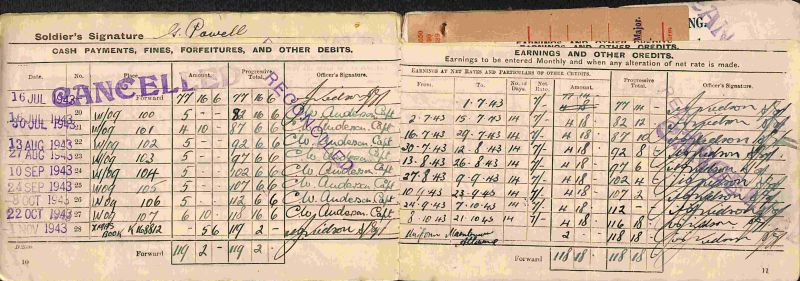 Soldier's Signature G. Powell
CASH PAYMENTS, FINES, FORFEITURES, AND OTHER DEBITS.
Date. No. Place. Amount. Progressive Total. Officer's Signature.
CANCELLED
RECONCILED
16 JUL 1943 Forward 77 16 6 77 16 6
16 JUL 1943 20 W/og 100 5 - 82 16 6 C.W. Anderson Capt
30 JUL 1943 21 W/og 101 4 10 - 87 6 6 C.W. Anderson Capt
13 AUG 1943 22 W/og 102 5 - 92 6 6 C.W. Anderson Capt
27 AUG 1943 23 W/og 103 5 - 97 6 6 C.W. Anderson Capt
10 SEP 1943 24 W/og 104 5 - 102 6 6 C.W. Anderson Capt
24 SEP 1943 25 W/og 105 5 - 107 6 6 C.W. Anderson Capt
8 OCT 1943 26 W/og 106 5 - 112 6 6 C.W. Anderson Capt
22 OCT 1943 27 W/og 107 6 10 - 118 16 6 C.W. Anderson Capt
1 NOV 1943 28 XMAS BOOK K168812 - 5 6 119 2 -
Forward 119 2 - 119 2 -
10
NG.
Major.
EARNINGS AND OTHER CREDITS.
EARNINGS AND OTHER CREDITS.
Earnings to be entered Monthly and when any alteration of net rate is made.
EARNINGS AT NET RATES AND PARTICULARS OF OTHER CREDITS.
From. To. No. of Days. Net Rate. Amount. Progressive Total. Officer's Signature.
1.7.43 7/- 77 14 77 14
2.7.43 15.7.43 14 7/- 4 18 82 12
16.7.43 29.7.43 14 7/- 4 18 87 10
30.7.43 12.8.43 14 7/- 4 18 92 8
13.8.43 26.8.43 14 7/- 4 18 97 6
27.8.43 9.9.43 14 7/- 4 18 102 4
10.9.43 23.9.43 14 7/- 4 18 107 2
24.9.43 7.10.43 14 7/- 4 18 112 -
8.10.43 21.10.43 14 7/- 4 18 116 18
Uniform 2 - 118 18
Forward 118 18 118 18
11